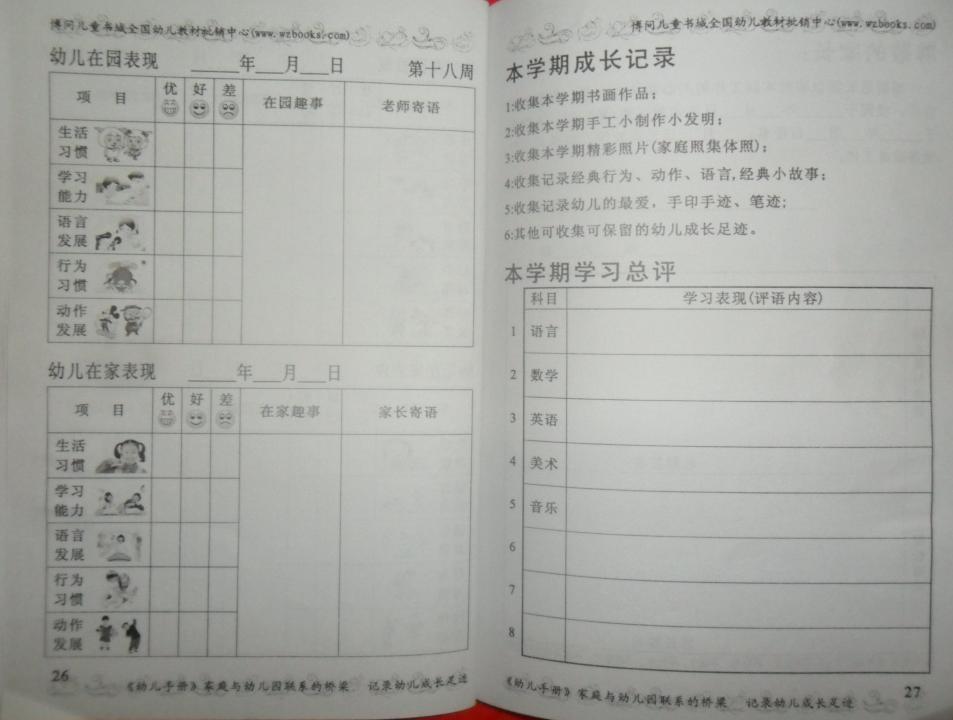 博问儿童书城全国幼儿教材批销中心(www.wzbooks.com)
幼儿在园表现 _____年___月___日 第十八周
项 目 优 好 差 在园趣事 老师寄语
生活
习惯
学习
能力
语言
发展
行为
习惯
动作
发展
幼儿在家表现 _____年___月___日
项 目 优 好 差 在家趣事 家长寄语
生活
习惯
学习
能力
语言
发展
行为
习惯
动作
发展
26
《幼儿手册》家庭与幼儿园联系的桥梁 记录幼儿成长足迹
博问儿童书城全国幼儿教材批销中心(www.wzbooks.com)
本学期成长记录
1:收集本学期书画作品;
2:收集本学期手工小制作小发明;
3:收集本学期精彩照片(家庭照集体照);
4:收集记录经典行为、动作、语言,经典小故事;
5:收集记录幼儿的最爱,手印手迹、笔迹;
6:其他可收集可保留的幼儿成长足迹。
本学期学习总评
科目 学习表现(评语内容)
1 语言
2 数学
3 英语
4 美术
5 音乐
6
7
8
《幼儿手册》家庭与幼儿园联系的桥梁 记录幼儿成长足迹
27